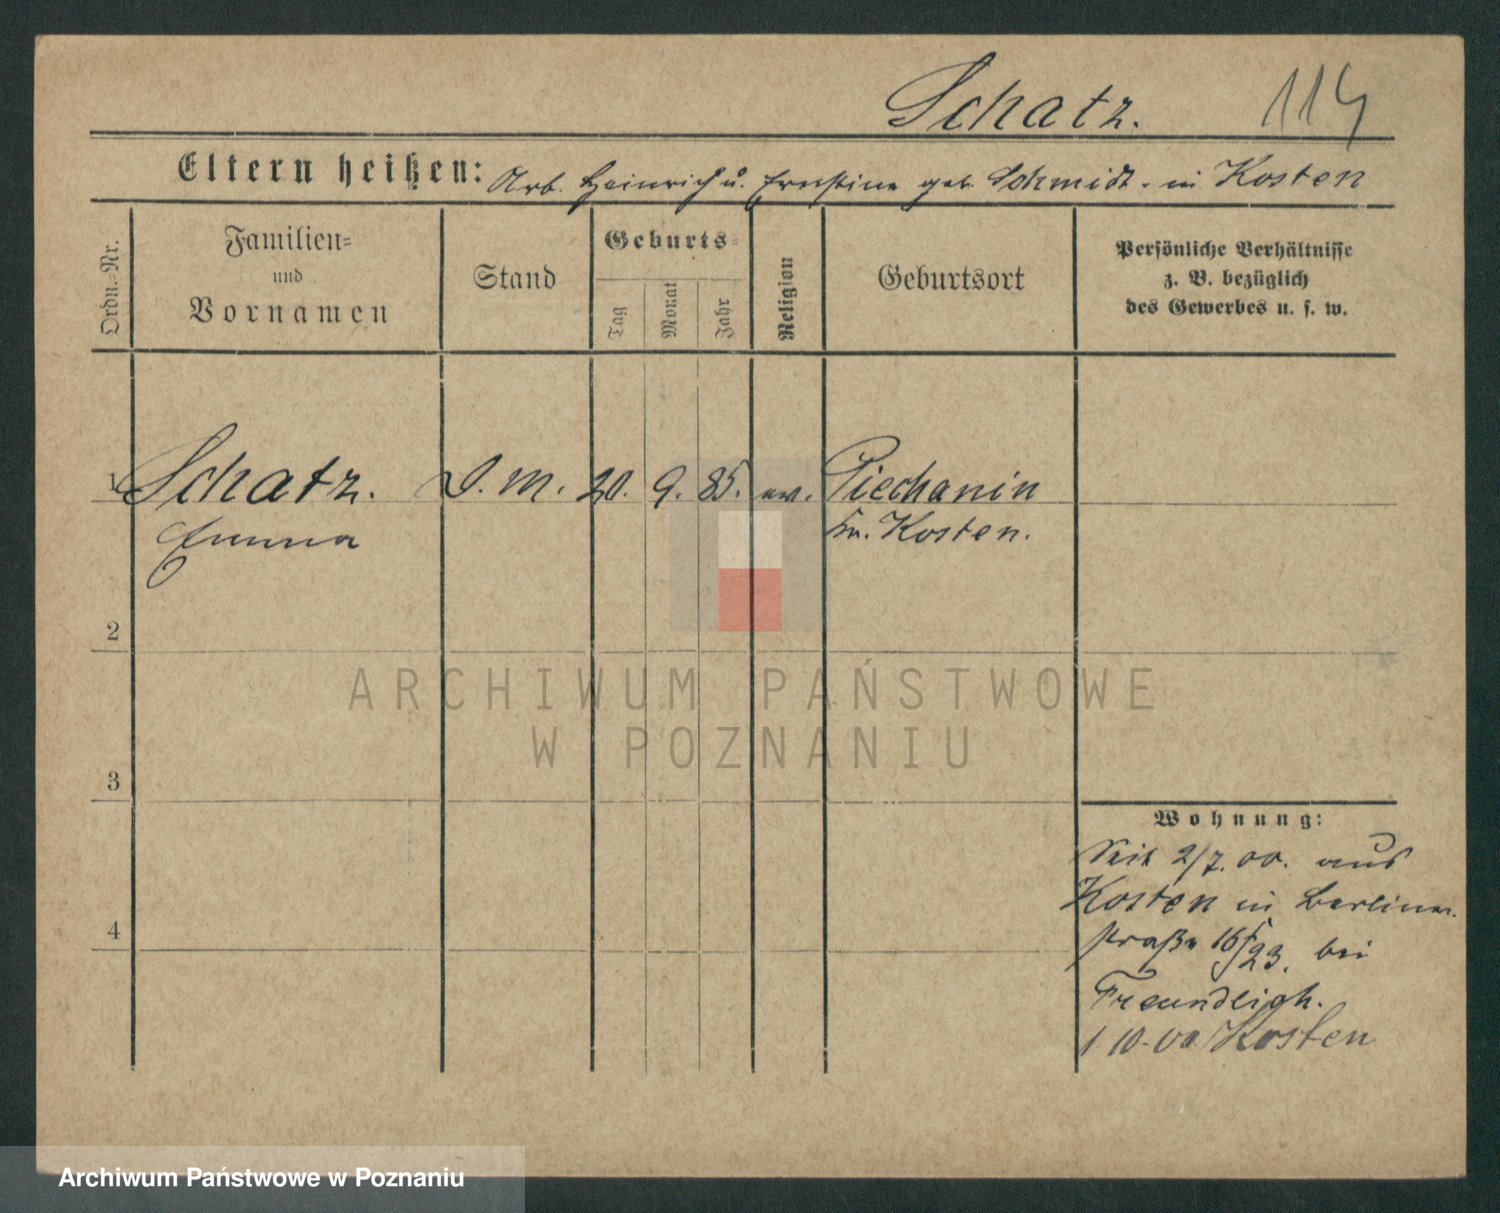 Schatz. 114
Eltern heißen: Arb. Heinrich u. Ernstine geb. Schmidt. in Kosten
Ordn.-Nr.
Familien-
und
Vornamen
Stand
Geburts-
Tag
Monat
Jahr
Religion
Geburtsort
Persönliche Verhältnisse
z. B. bezüglich
des Gewerbes u. s. w.
1 Schatz. D. M. 20. 9. 85. ev. Piechanin
Emma Kr. Kosten.
2
ARCHIWUM PAŃSTWOWE
W POZNANIU
3
Wohnung:
Seit 2/7.00. aus
Kosten in Berliner-
straße 16/23. bei
4
1.10.00 Kosten
Archiwum Państwowe w Poznaniu